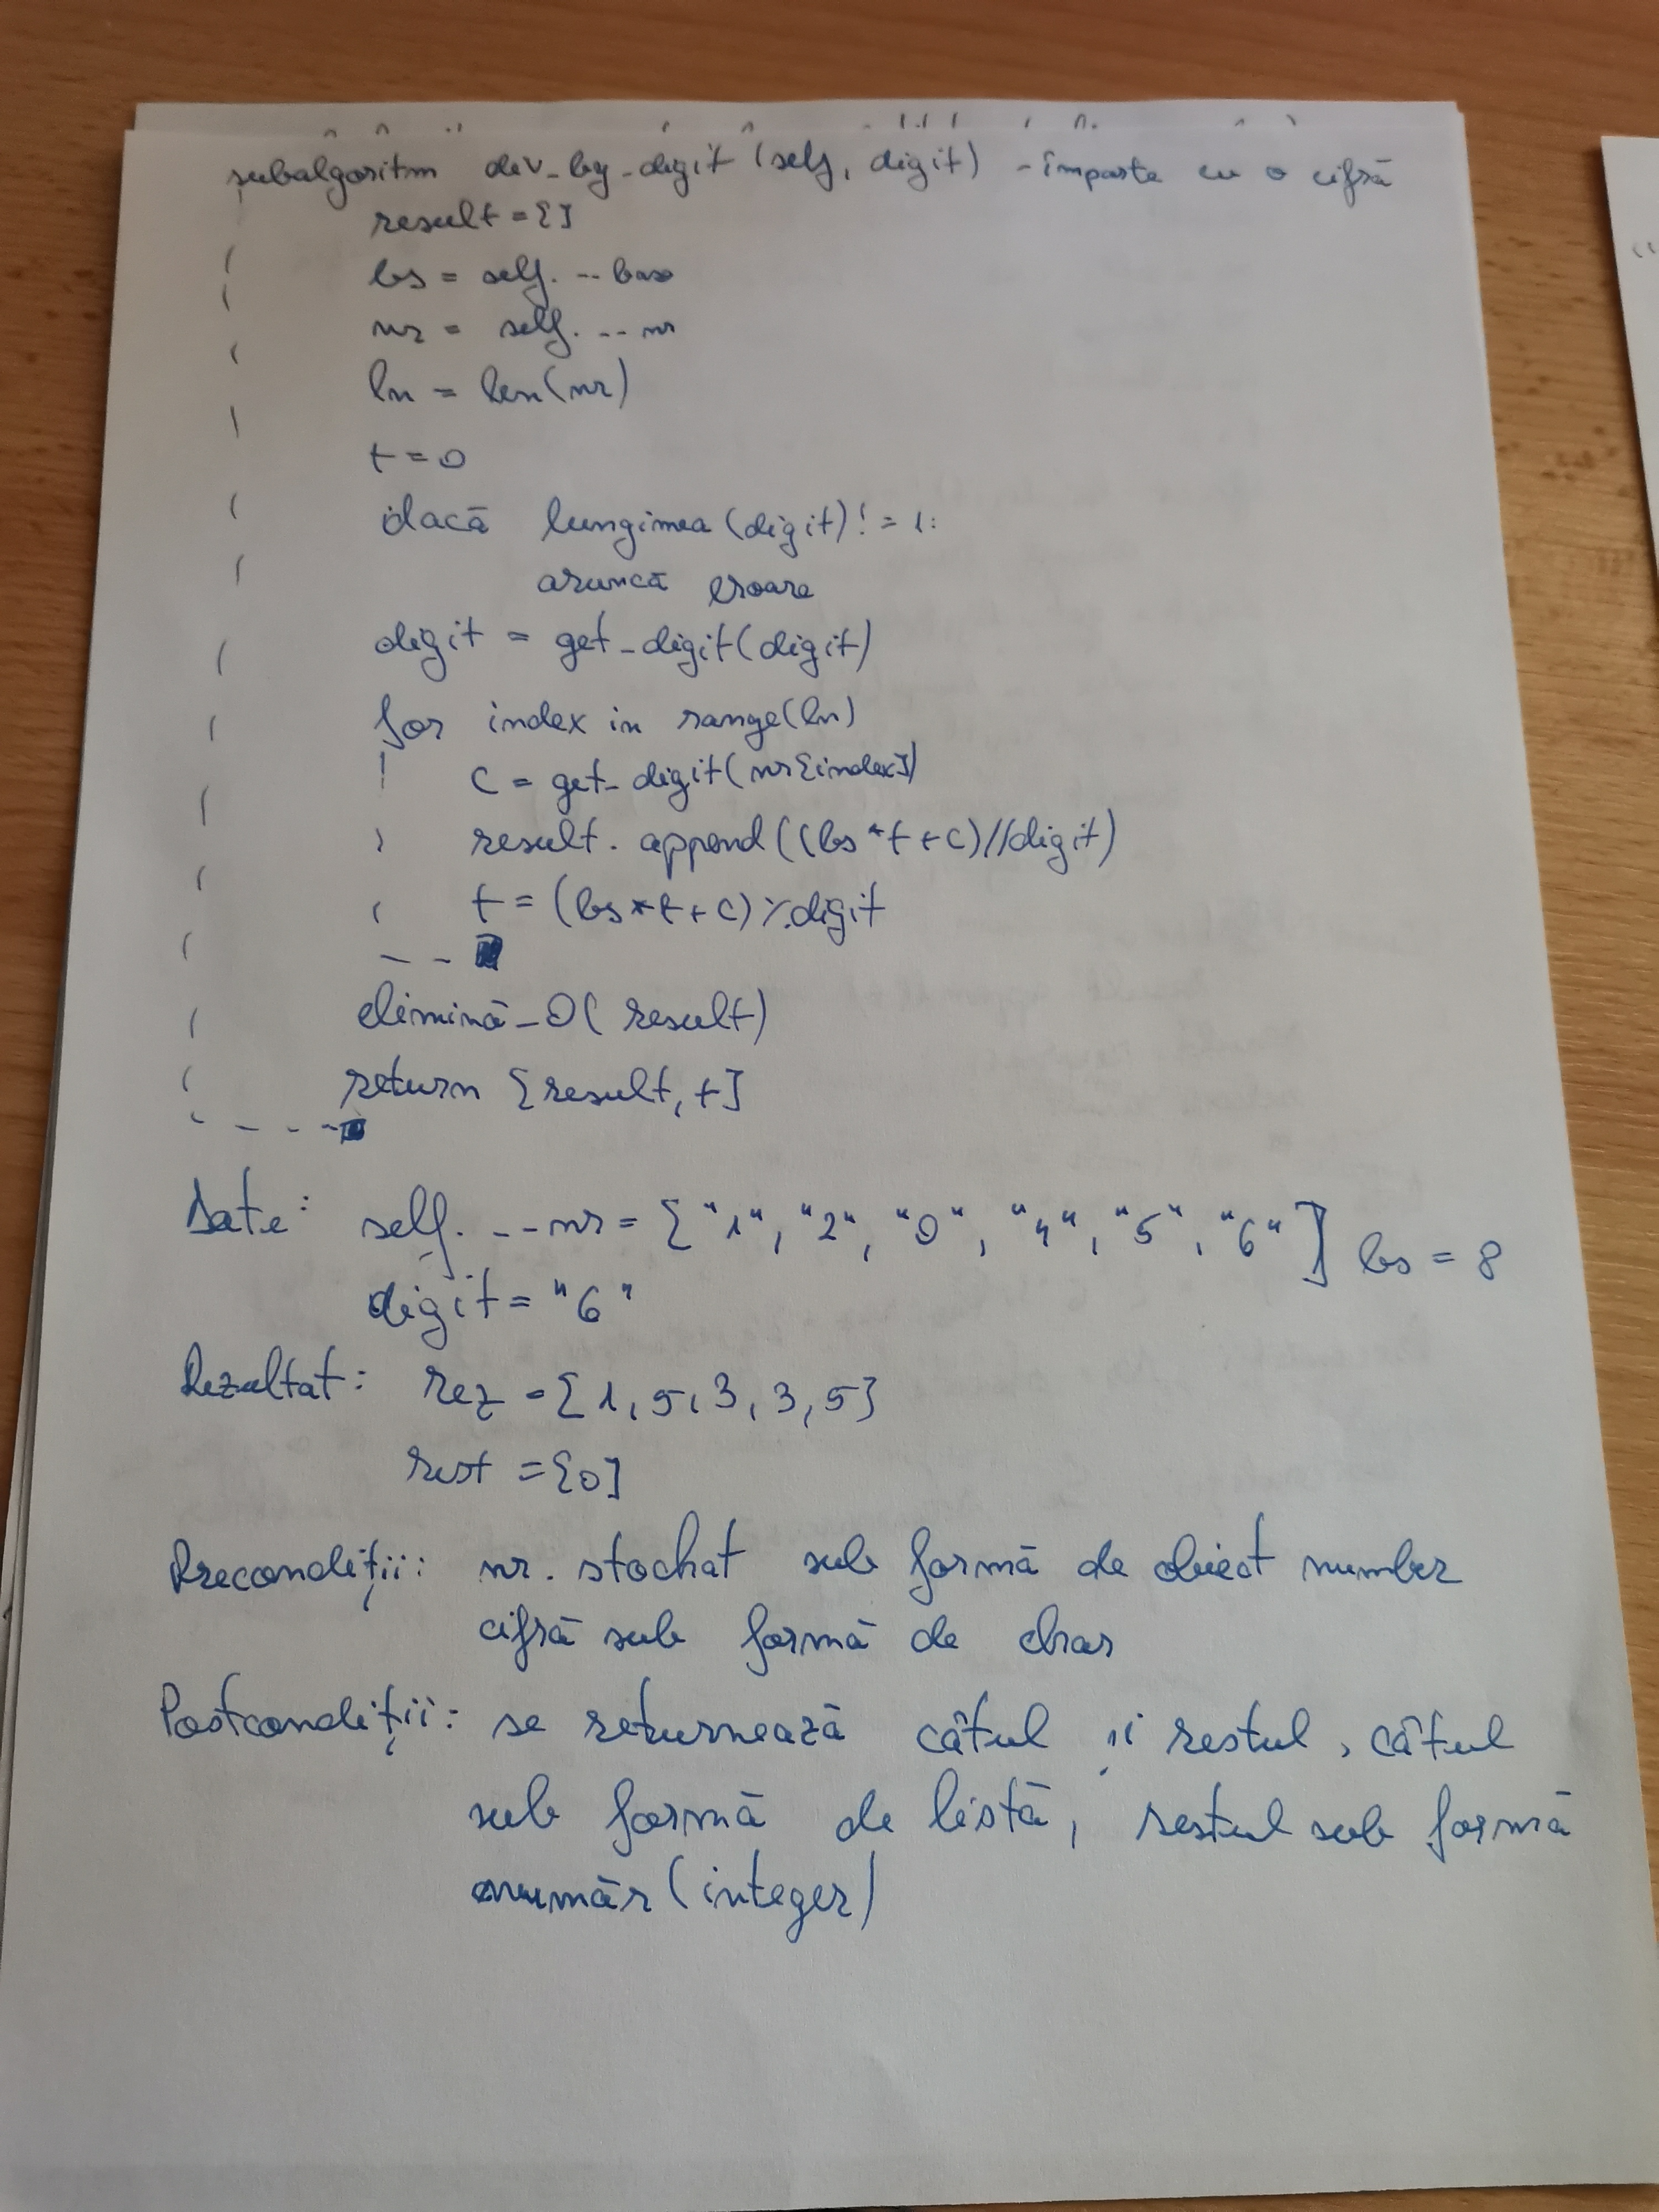 subalgoritm div_by_digit (self, digit) - împarte cu o cifră
result = []
bs = self. __ base
nr = self. __ nr
ln = len(nr)
t = 0
dacă lungimea (digit) != 1:
aruncă eroare
digit = get_digit(digit)
for index in range(ln)
c = get_digit(nr[index])
result. append((bs*t+c)//digit)
t = (bs*t+c)%digit
elimină_0( result)
return [result, t]
Date: self. __ nr = ["1", "2", "0", "4", "5", "6"] bs = 8
digit = "6"
Rezultat: rez = [1, 5, 3, 3, 5]
rest = [0]
Precondiții: nr. stochat sub formă de obiect number
cifră sub formă de char
Postcondiții: se returnează câtul și restul, câtul
sub formă de listă, restul sub formă
număr (integer)